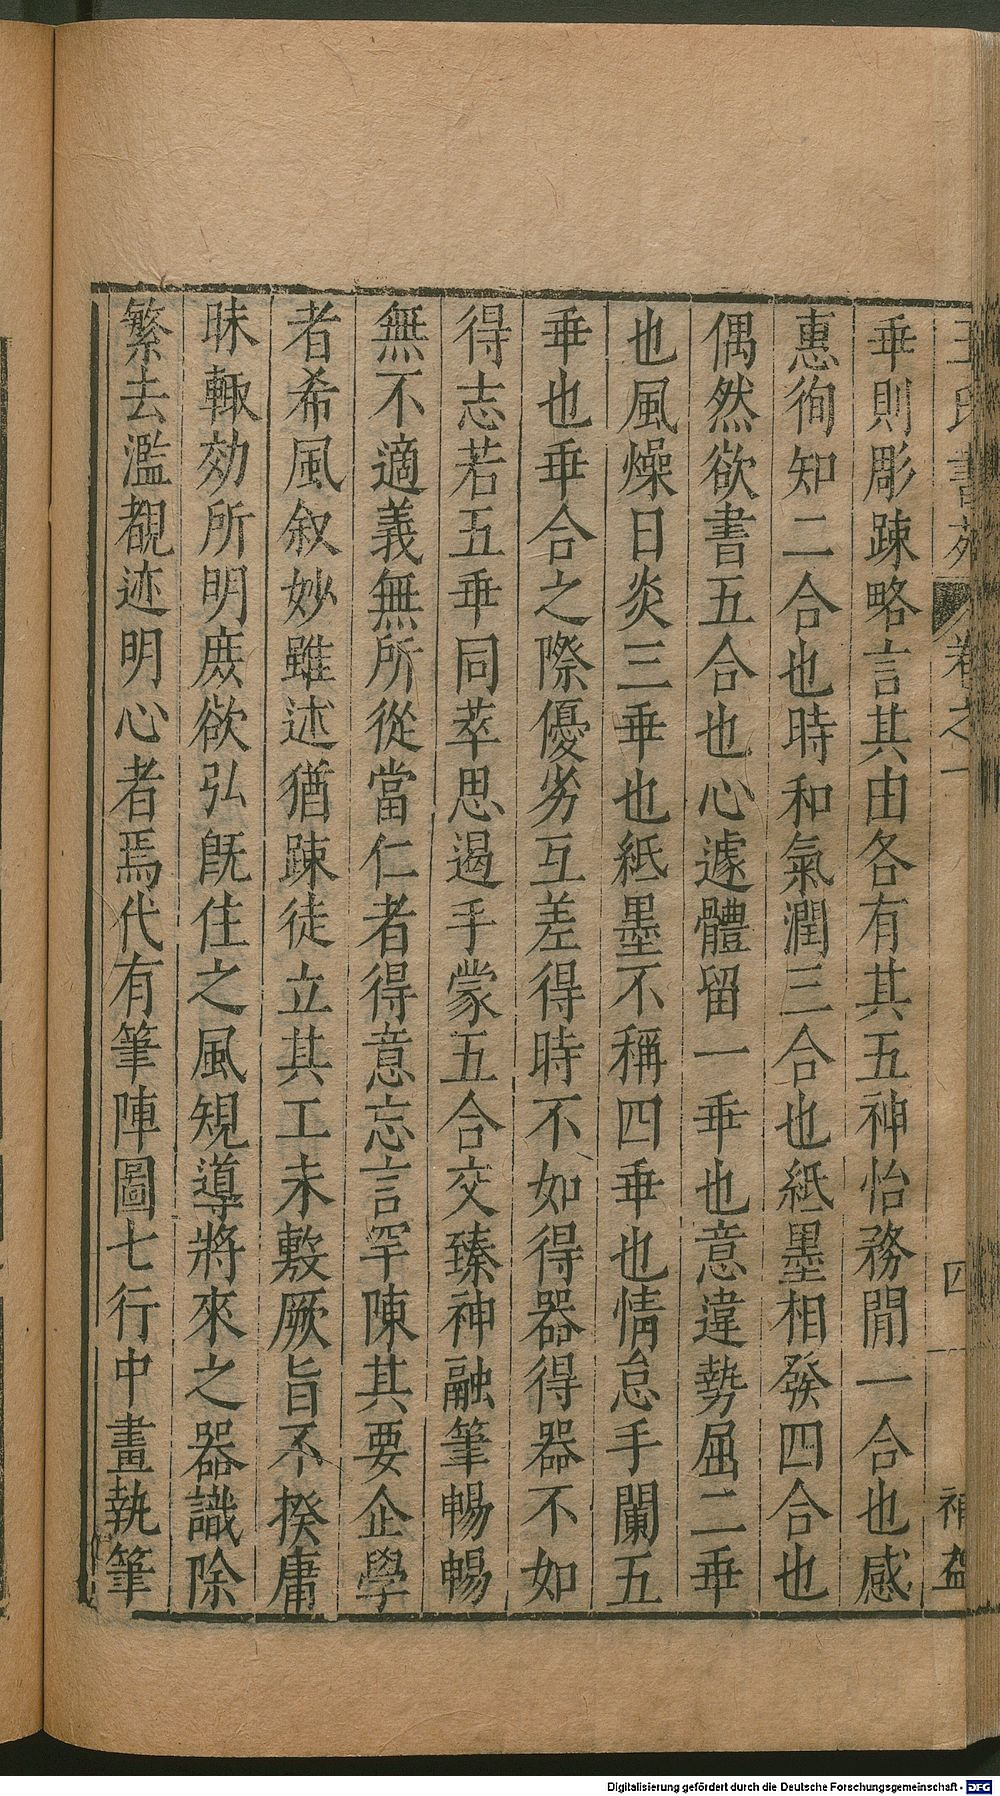 王氏書苑 卷之一 四 補益
垂則彫踈略言其由各有其五神怡務閒一合也感
惠徇知二合也時和氣潤三合也紙墨相發四合也
偶然欲書五合也心遽體留一垂也意違勢屈二垂
也風燥日炎三垂也紙墨不稱四垂也情怠手闌五
垂也垂合之際優劣互差得時不如得器得器不如
得志若五垂同萃思遏手蒙五合交臻神融筆暢暢
無不適義無所從當仁者得意忘言罕陳其要企學
者希風叙妙雖述猶踈徒立其工未敷厥旨不揆庸
昧輙効所明庻欲弘旣往之風䂓導將來之器識除
繁去濫覩迹明心者焉代有筆陣圖七行中畫執筆
Digitalisierung gefördert durch die Deutsche Forschungsgemeinschaft - DFG